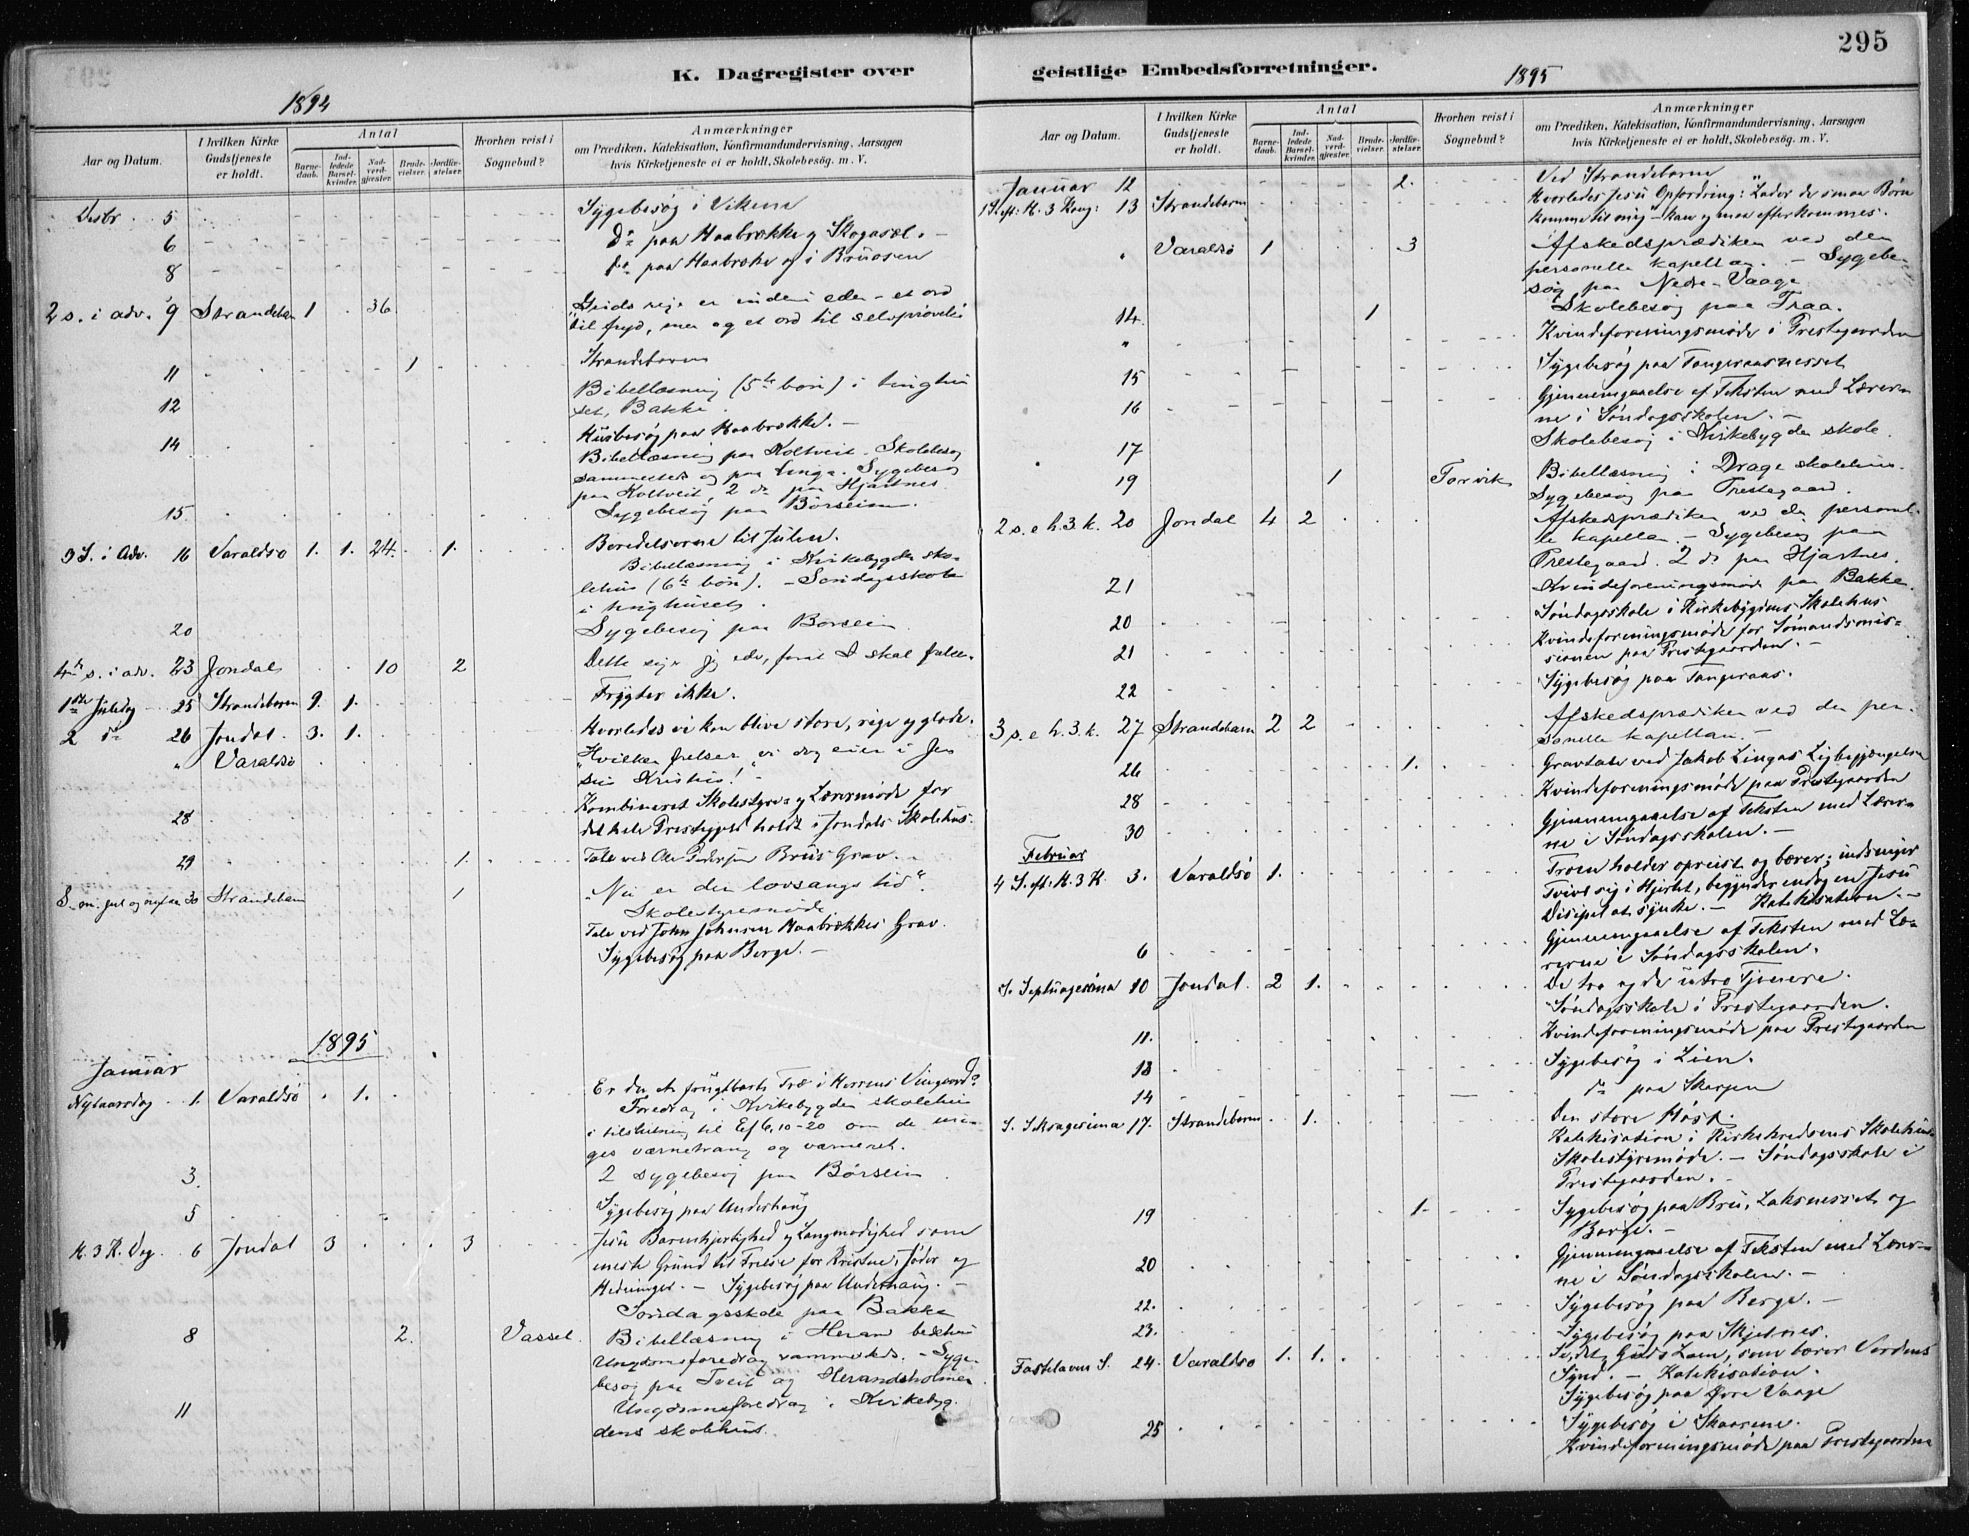 295
K. Dagregister over geistlige Embedsforretninger.
1894
Aar og Datum.
I hvilken Kirke Gudstjeneste er holdt.
Antal
Barnedaab.
Indledede Barselkvinder.
Nadverdgjæster.
Brudevielser.
Jordfæstelser.
Hvorhen reist i Sognebud?
Anmærkninger
om Prædiken, Katekisation, Konfirmandundervisning, Aarsagen
hvis Kirketjeneste ei er holdt, Skolebesøg. m. V.
Desbr. 5 Sygebesøg i Vikene
6 Do paa Haabrække og Skogasel.
8 Do paa Haabrække og i Bruosen
2 s. i adv. 9 Strandebarm 1 36 Guds rige er inden i eder - et ord
til fryd, men og et ord til selvprøvelse
11 1 Strandebarm
12 Bibellæsning (5te bøn) i tinghu
set, Bakke.
14 Husbesøg paa Haabrække. -
Bibellæsning paa Koltveit. Skolebesøg
sammesteds og paa Linga. Sygebesøg
paa Koltveit, 2 do paa Hjartnes.
15. Sygebesøg paa Børseim.
3 S. i Adv. 16 Varaldsø 1. 1. 24. 1. Beredelserne til Julen.
Bibellæsning i Kirkebygdens sko-
lehus (6te bøn). - Søndagsskole
i tinghuset.
20 Sygebesøg paa Børseim
4de s. i adv. 23 Jondal 10 2 Dette siger jeg eder, forat I skal
1ste Juledag 25 Strandebarm 9. 1. Frygter ikke.
2 do 26 Jondal. 3. 1. Hvorledes vi kan blive store, rige og glade.
" Varaldsø Hvilken frelser vi dog eier i Je
su Kristus!
28 Kombineret Skolestyre- og Lærermøde for
det hele Prestegjeld holdt i Jondals Skolehus.
29 1. Tale ved Ole Pedersen Brus Grav.
S. m. jul og nytaar 30 Strandebarm 1 "Nu er der lovsangs tid".
Skolestyremøde
Tale ved John Johnsen Haabrækkes Grav.
Sygebesøg paa Berge. -
1895
Januar
Nytaarsdag 1. Varaldsø 1. Er du et frugtbart Træ i Herrens Vingaard?
Foredrag i Kirkebygdens skolehus
i tilslutning til Ef 6, 10-20 om de
værnetrang og værneret.
3. 2 Sygebesøg paa Børseim
5 Sygebesøg paa Underhaug
H. 3 K. Dag. 6 Jondal 3 3 Jesu Barmhjertighed og Langmodighed som
neste Grund til Frelse for Kristne, Jøder og
Hedninger. - Sygebesøg paa Underhaug. -
Søndagsskole paa Bakke
8 2. Vassel. Bibellæsning i Herand bedehus
Ungdomsforedrag sammesteds. - Syge-
besøg paa Tveit og Herandsholmen
11 Ungdomsforedrag i Kirkebyg-
dens skolehus.
1895
Aar og Datum.
I hvilken Kirke Gudstjeneste er holdt.
Antal
Barnedaab.
Indledede Barselkvinder.
Nadverdgjæster.
Brudevielser.
Jordfæstelser.
Hvorhen reist i Sognebud?
Anmærkninger
om Prædiken, Katekisation, Konfirmandundervisning, Aarsagen
hvis Kirketjeneste ei er holdt, Skolebesøg. m. V.
Januar 12 2. Ved Strandebarm
1 S. eft: H. 3 Kong: 13 Strandebarm Hvorledes Jesu Opfordring: "Lader de smaa Børn
komme til mig" kan og maa efterkommes.
" Varaldsø 1 3 Afskedsprædiken ved den
personelle kapellan. - Sygebe-
søg paa Nedre Vaage.
14 1 Skolebesøg paa Traa.
" Kvindeforeningsmøde i Prestegaarden
15 Sygebesøg paa Tangeraasnesset
16 Gjennemgaaelse af Teksten med Lærer-
ne i Søndagsskolen. -
17 Skolebesøg i Kirkebygdens skole.
19 1 Torvik Bibellæsning i Drage skolehus.
Sygebesøg paa Prestegaard.
2 s. e h. 3 k. 20 Jondal 4 2 Afskedsprædiken ved den personel-
le kapellan. - Sygebesøg paa
Prestegaard. 2 do paa Hjartnes.
21 Kvindeforeningsmøde paa Bakke.
20 Søndagsskole i Kirkebygdens Skolehus
21 Kvindeforeningsmøde for Sømandsmis-
sionen paa Prestegaarden. -
22 Sygebesøg paa Tangeraas.
3 s. e h. 3. k. 27 Strandebarm 2 2 Afskedsprædiken ved den per-
sonelle kapellan. -
26 1. Gravtale ved Jakob Lingas Ligbegjængelse
28 Kvindeforeningsmøde paa Prestegaarden
30 Gjennemgaaelse af Teksten med Lærer-
ne i Søndagsskolen. -
Februar
4 S. eft. H. 3 K. 3. Varaldsø 1. Troen holder opreist og bærer; indsniger
Tvivl sig i Hjertet, begynder endog en Jesu
Discipel at synke. - Katekisation. -
6 Gjennemgaaelse af Teksten med Læ-
rerne i Søndagsskolen.
S. Septuagesima 10 Jondal. 2 1. De tro og de utro Tjenere.
Søndagsskole i Prestegaarden.
11. Kvindeforeningsmøde paa Prestegaarden
13 Sygebesøg i Lien.
14 do paa Skarpen
S. Seksagesima 17. Strandebarm 1. Den store Høst.
Katekisation i Kirkekredsens Skolehus
Skolestyremøde. - Søndagsskole i
Prestegaarden. -
19 1. Sygebesøg paa Bru, Laksnesset og
Berge. -
20 Gjennemgaaelse af Teksten med Lærer-
ne i Søndagsskolen. -
22. Sygebesøg paa Berge. -
23. Sygebesøg paa Skjelnes.
Fastelavns S. 24. Varaldsø 1. 1. Se, det Guds Lam, som bærer Verdens
Synd. - Katekisation.
Sygebesøg paa Øvre Vaage
25 Sygebesøg i Skaarene.
Kvindeforeningsmøde paa Prestegaarden